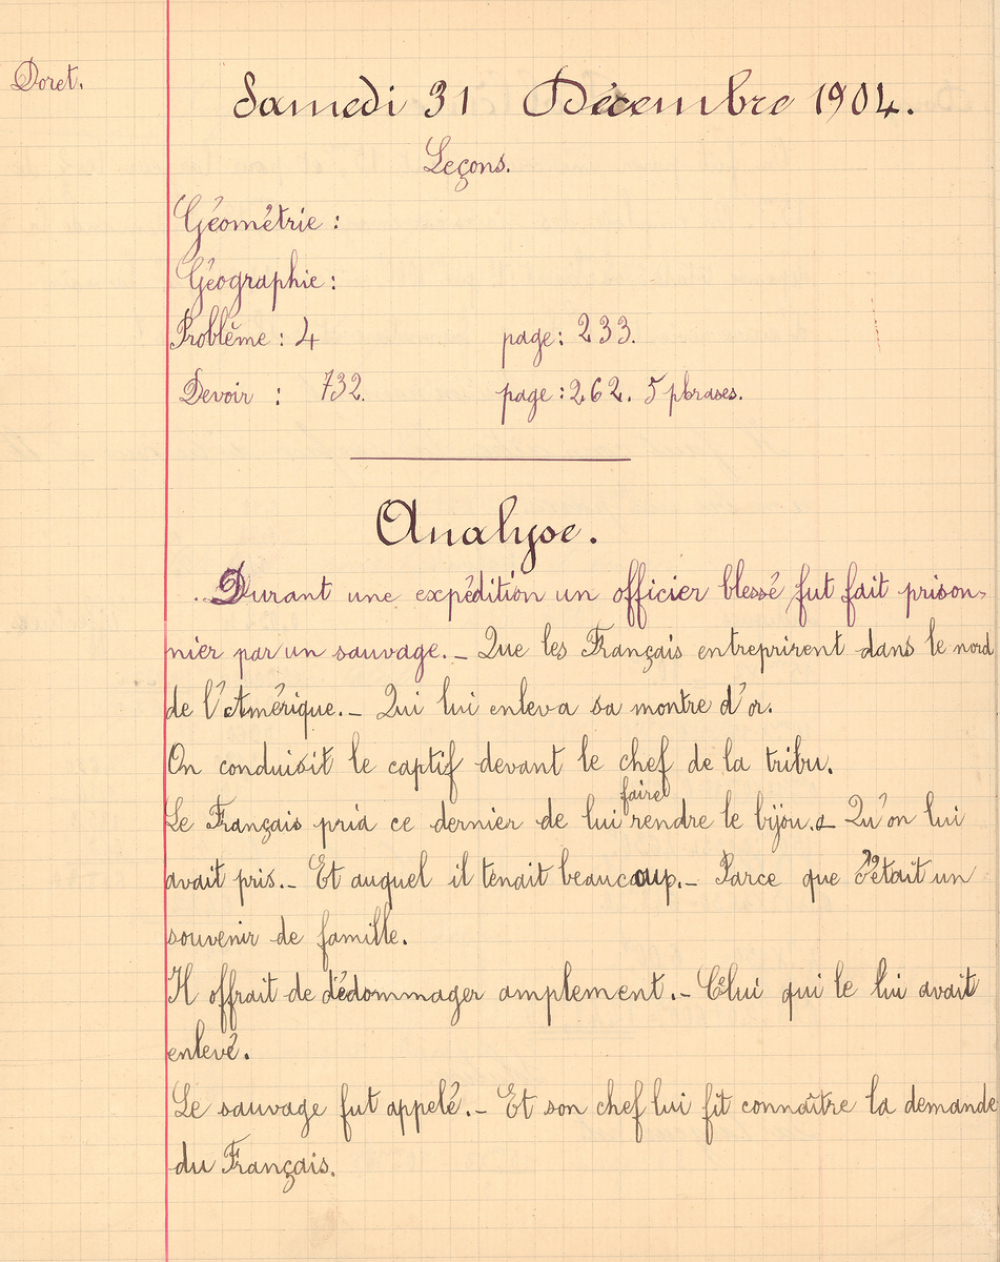 Doret.
Samedi 31 Décembre 1904.
Leçons.
Géométrie :
Géographie :
Problême : 4 page : 233.
Devoir : 732. page : 262. 5 phrases.
Analyse.
Durant une expédition un officier blessé fut fait prison-
nier par un sauvage. _ Que les Français entreprirent dans le nord
de l'Amérique. _ Qui lui enleva sa montre d'or.
On conduisit le captif devant le chef de la tribu.
faire
Le Français pria ce dernier de lui rendre le bijou. _ Qu'on lui
avait pris. _ Et auquel il tenait beaucoup. _ Parce que c'était un
souvenir de famille.
Il offrait de dédommager amplement. _ Celui qui le lui avait
enlevé.
Le sauvage fut appelé. _ Et son chef lui fit connaître la demande
du Français.